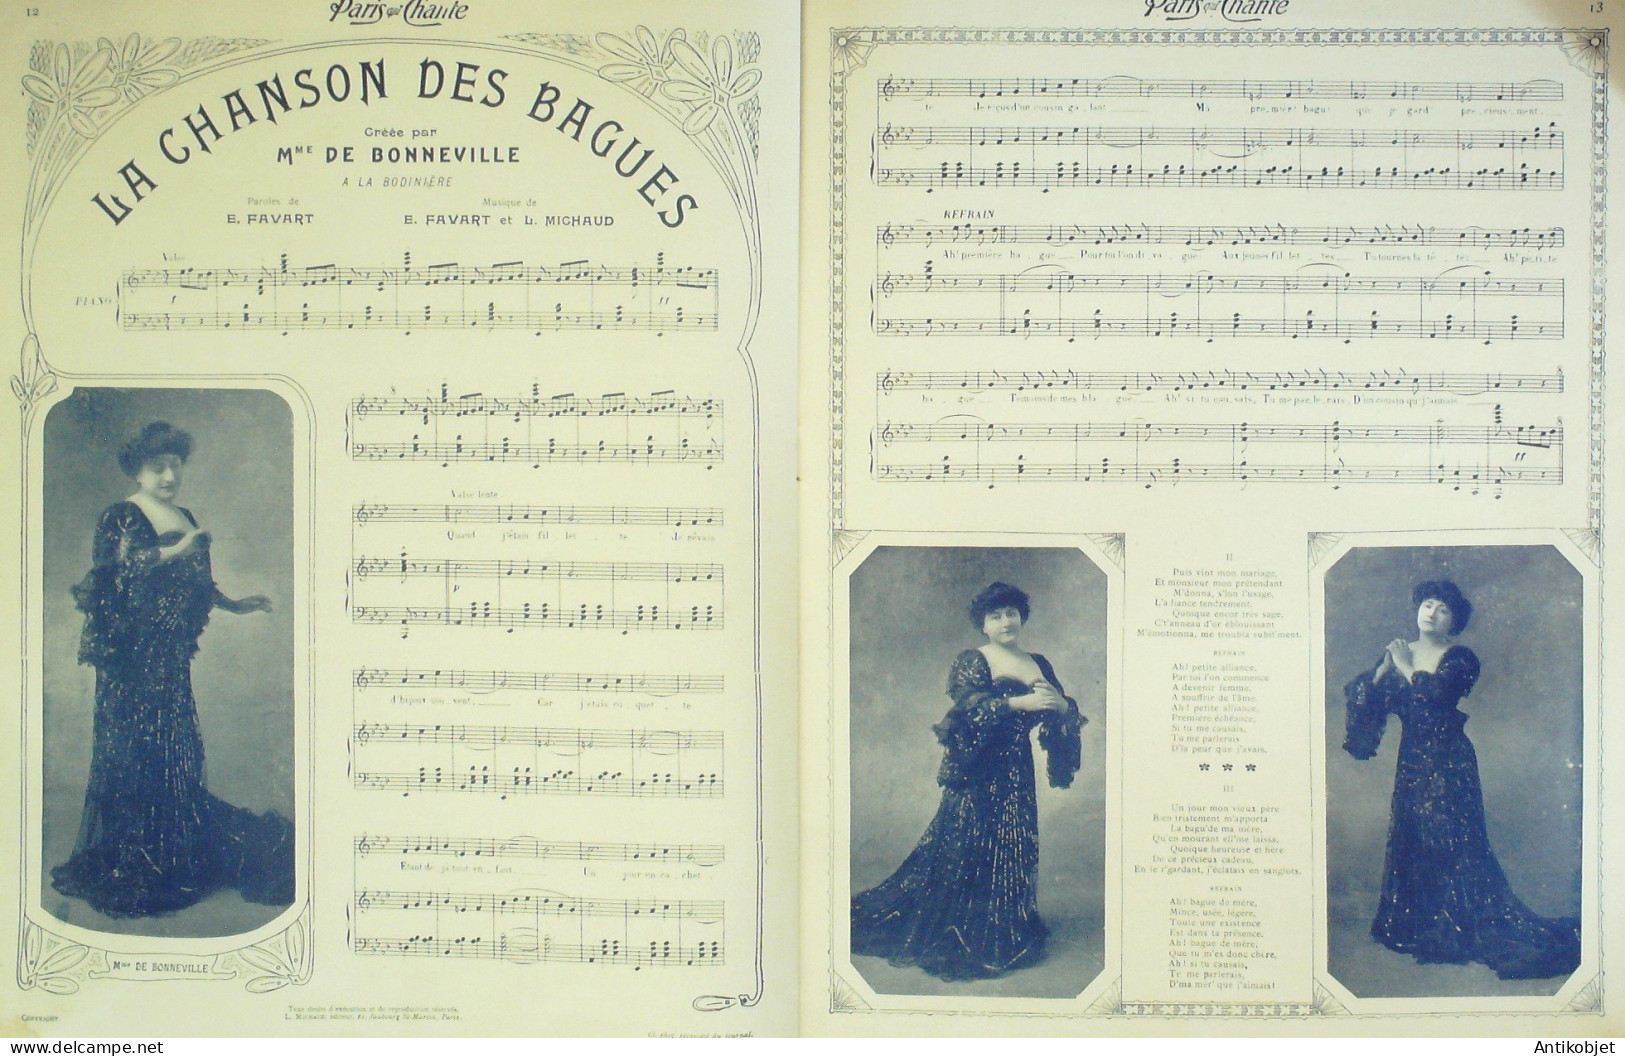 12
Paris qui Chante
LA CHANSON DES BAGUES
Créée par
MME DE BONNEVILLE
A LA BODINIÈRE
Paroles de
E. FAVART
Musique de
E. FAVART et L. MICHAUD
Valse
PIANO
f
ff
8
Valse lente
Quand j'étais fil _ let _ te Je rêvais
p
d'bijoux sou_vent, Car j'étais co_quet_te
Etant déjà tout en_fant. Un jour en ca_chet_
MME DE BONNEVILLE
COPYRIGHT.
Tous droits d'exécution et de reproduction réservés.
L. MICHAUD, éditeur, 61, faubourg St-Martin, Paris.
Cl. phot. exécutés du journal.
Paris qui Chante
13
te Je reçus d'un cousin ga_lant Ma pre_mièr' bague que je gard' pré_cieus'_ment.
REFRAIN
Ah! première ba_gue Pour toi l'on di_va_gue Aux jeunes fil_let_tes Tu tournes la tê_tes Ah! pe_ti_te
ba_gue Témoins de mes bla_gues Ah! si tu cau_sais, Tu me par_le_rais, D'un cousin qu'j'aimais
8
ff
II
Puis vint mon mariage,
Et monsieur mon prétendant
M'donna, s'lon l'usage,
L'a liance tendrement.
Quoique encor très sage,
C't'anneau d'or éblouissant
M'émotionna, me troubla subit'ment.
REFRAIN
Ah! petite alliance,
Par toi l'on commence
A devenir femme,
A souffrir de l'âme
Ah! petite alliance,
Première échéance,
Si tu me causais,
Tu me parlerais
D'la peur que j'avais.
* * *
III
Un jour mon vieux père
Bien tristement m'apporta
La bagu'de ma mère,
Qu'en mourant ell'me laissa,
Quoique heureuse et fière
De ce précieux cadeau,
En le r'gardant, j'éclatais en sanglots.
REFRAIN
Ah! bague de mère,
Mince, usée, légère,
Toute une existence
Est dans ta présence.
Ah! bague de mère,
Que tu m'es donc chère,
Ah! si tu causais,
Te me parlerais,
D'ma mèr' que j'aimais!
Antikobjet